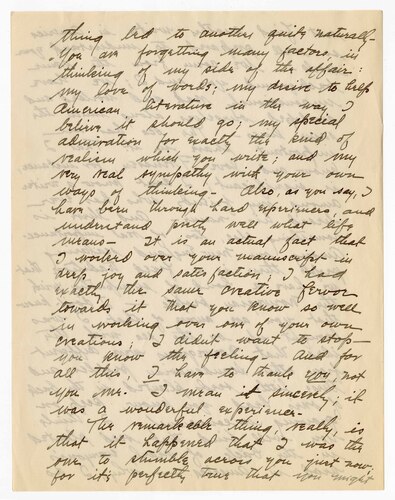 thing led to another quite naturally—
You are forgetting many factors in
thinking of my side of the affair:
my love of words; my desire to help
American literature in the way I
believe it should go; my special
admiration for exactly the kind of
realism which you write; and my
very real sympathy with your own
ways of thinking— Also, as you say, I
have been through hard experiences, and
understand pretty well what life
means— It is an actual fact that
I worked over your manuscript in
deep joy and satisfaction; I had
exactly the same creative fervor
towards it that you know so well
in working over one of your own
creations; I didn't want to stop—
you know the feeling— And for
all this, I have to thank you, not
you me. I mean it sincerely; it
was a wonderful experience—
The remarkable thing, really, is
that it happened that I was the
one to stumble across you just now,
for it's perfectly true that you might